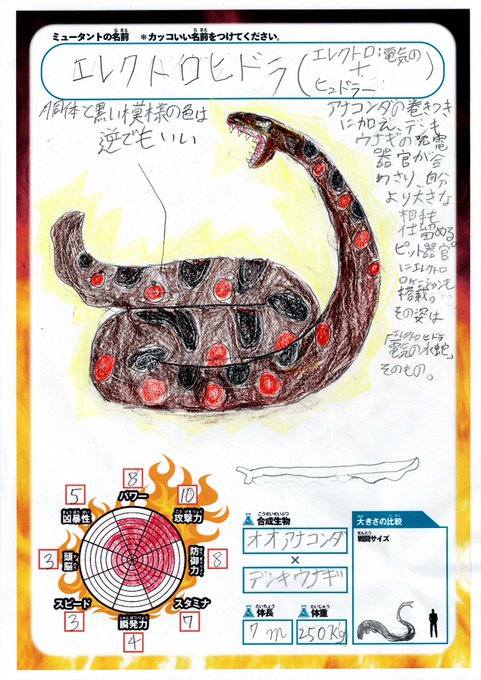 ミュータントの名前 ＊カッコいい名前をつけてください。
エレクトロヒドラ(エレクトロ:電気の
+
ヒュドラー)
胴体と黒い模様の色は
逆でもいい
アナコンダの巻きつき
に加え、デンキ
ウナギの発電
器官が合
わさり、自分
より大きな
相手も
仕留める。
ピット器官
にエレクトロ
ロケーションも
搭載。
その姿は
「電気の水蛇」
エレクトロヒドラ
そのもの。
8
パワー
5
凶暴性
10
攻撃力
3
頭脳
防御力
8
スピード
3
スタミナ
7
瞬発力
4
合成生物
オオアナコンダ
×
デンキウナギ
体長
7m
体重
250Kg
大きさの比較
戦闘サイズ